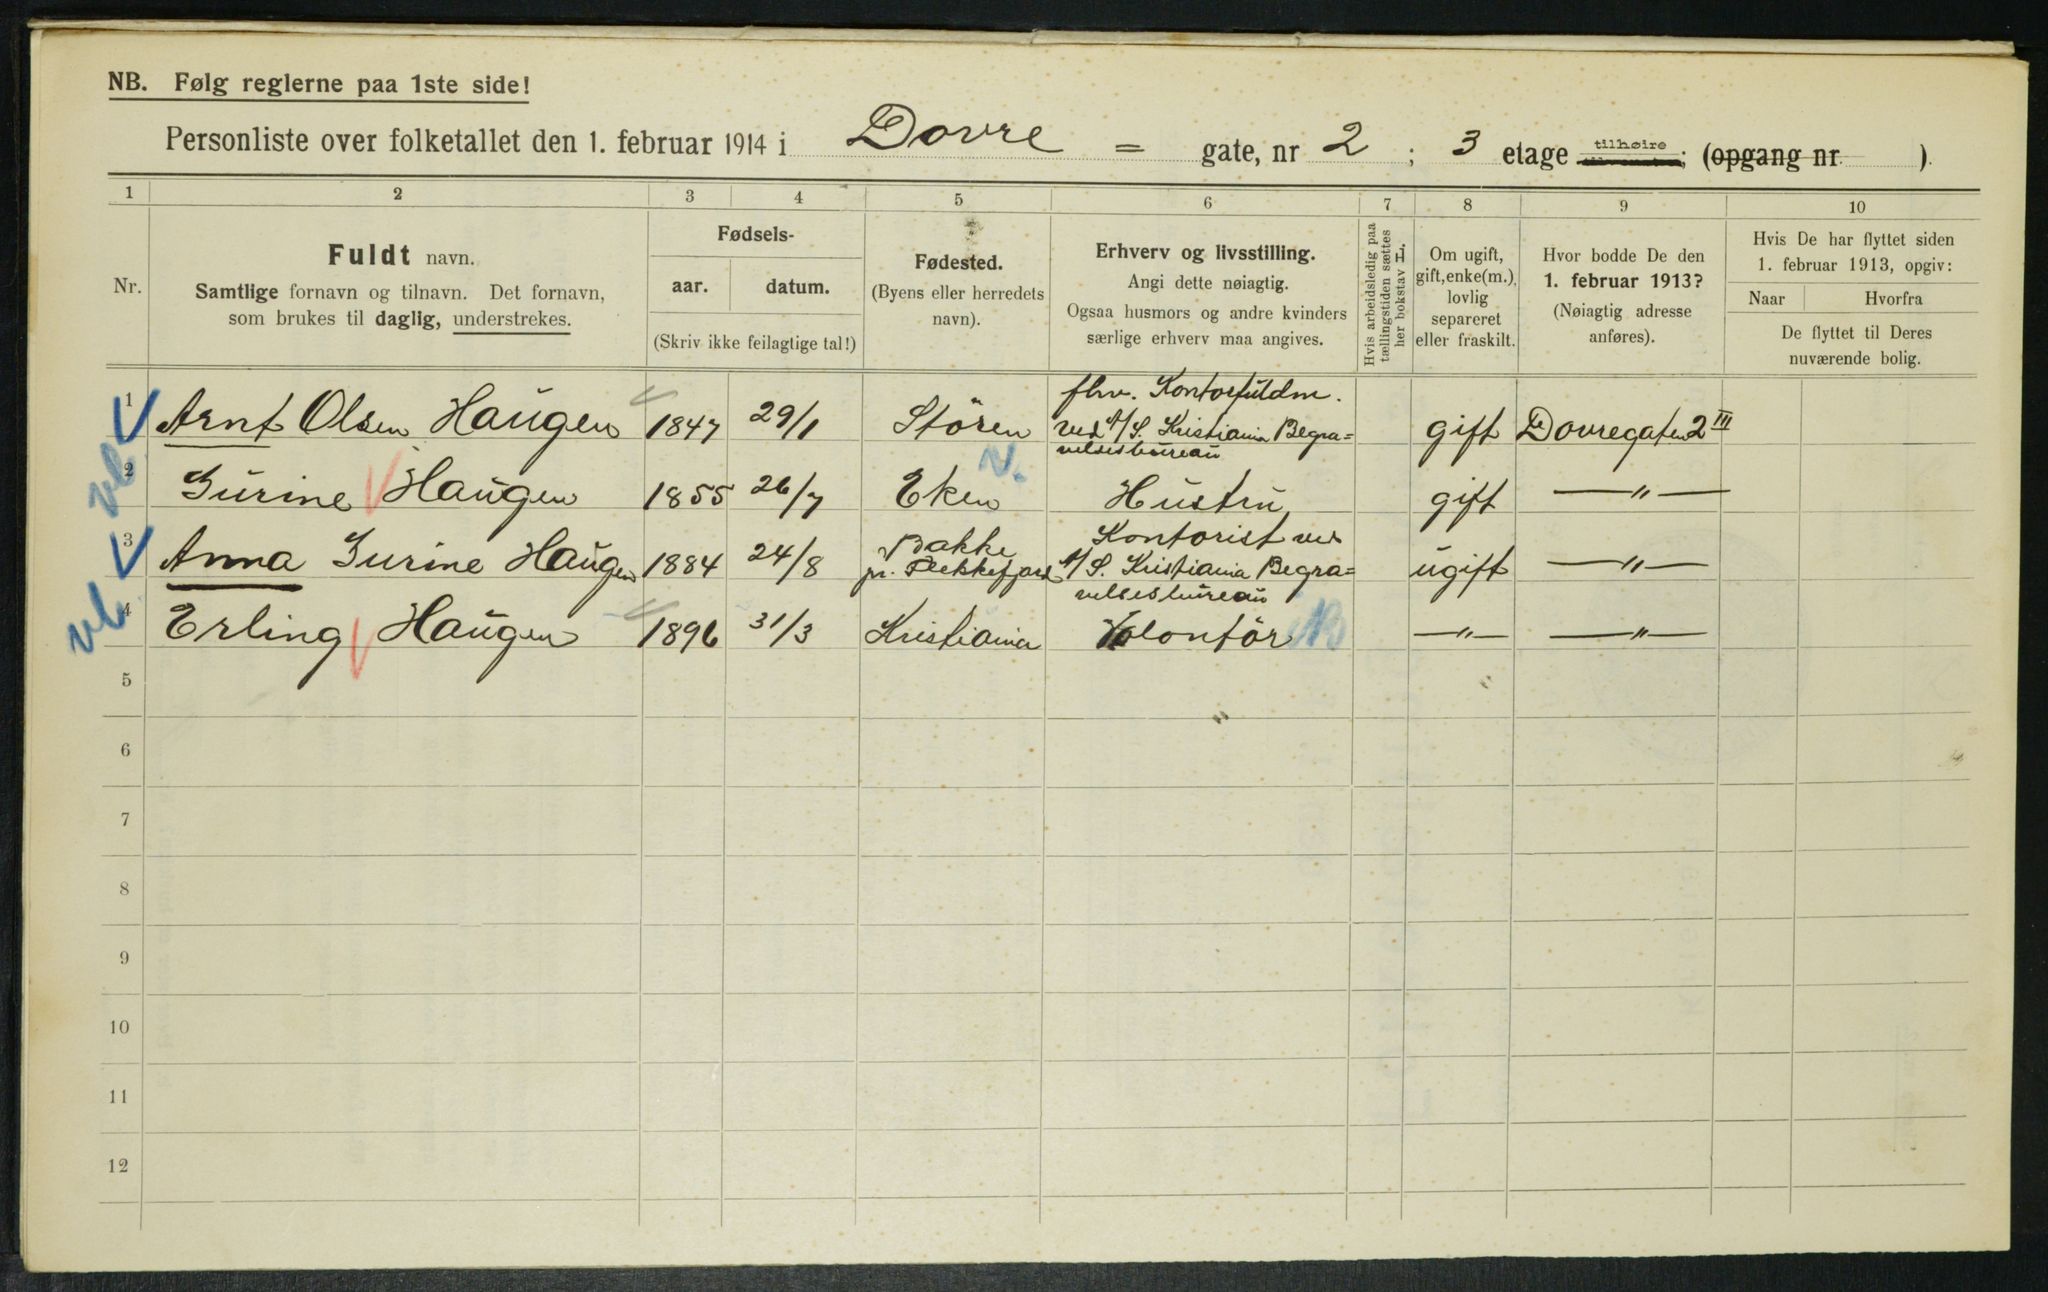 NB. Følg reglerne paa 1ste side!
Personliste over folketallet den 1. februar 1914 i Dovre = gate, nr 2 ; 3 etage tilhøire; (opgang nr )
1 2 3 4 5 6 7 8 9 10
Nr.
Fuldt navn.
Samtlige fornavn og tilnavn. Det fornavn,
som brukes til daglig, understrekes.
Fødsels-
aar. datum.
(Skriv ikke feilagtige tal!)
Fødested.
(Byens eller herredets
navn).
Erhverv og livsstilling.
Angi dette nøiagtig.
Ogsaa husmors og andre kvinders
særlige erhverv maa angives.
Hvis arbeidsledig paa
tællingstiden sættes
her bokstav L.
Om ugift,
gift, enke(m.),
lovlig
separeret
eller fraskilt.
Hvor bodde De den
1. februar 1913?
(Nøiagtig adresse
anføres).
Hvis De har flyttet siden
1. februar 1913, opgiv:
Naar Hvorfra
De flyttet til Deres
nuværende bolig.
1 Arnt Olsen Haugen 1847 29/1 Stören fhv. Kontorfuldm.
ved A/S. Kristiania Begra=
velsesbureau
gift Dovregaten 2 III
2 Gurine Haugen 1855 26/7 Eken Hustru gift — " —
3 Anna Gurine Haugen 1884 24/8 Bakke
pr. Flekkefjord
Kontorist ved
A/S. Kristiania Begra=
velsesbureau
ugift — " —
4 Erling Haugen 1896 31/3 Kristiania Volontör — " — — " —
5
6
7
8
9
10
11
12